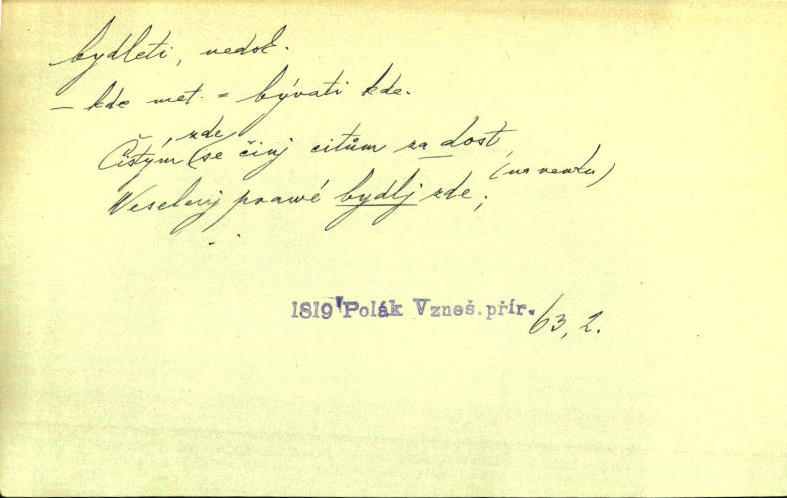 bydleti, nedok.
– kde met. = bývati kde.
Čistým zde se činj citům za dost,
Weselený prawé bydlj zde; (na venku)
1819 Polák Vzneš. přír. 63, 2.